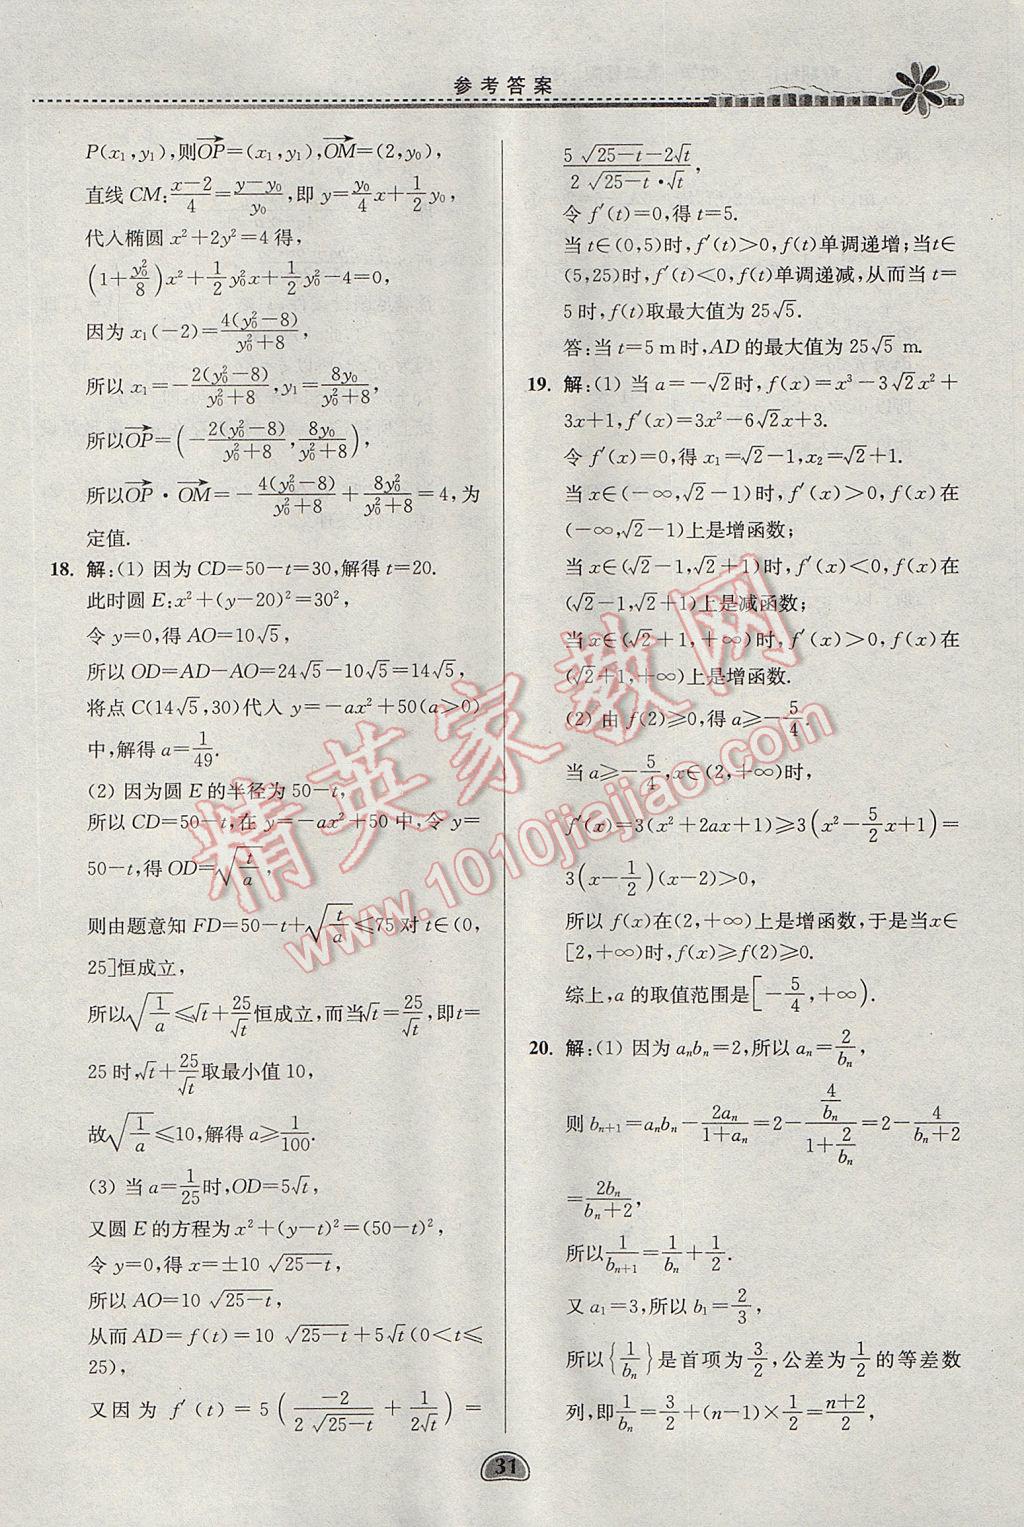 参考答案
P(x₁,y₁),则OP→=(x₁,y₁),OM→=(2,y₀),
直线 CM:(x-2)/4=(y-y₀)/y₀,即 y=(y₀/4)x+(1/2)y₀,
代入椭圆 x²+2y²=4 得,
(1+y₀²/8)x²+(1/2)y₀²x+(1/2)y₀²-4=0,
因为 x₁(-2)=4(y₀²-8)/(y₀²+8),
所以 x₁=-2(y₀²-8)/(y₀²+8),y₁=8y₀/(y₀²+8),
所以OP→=(-2(y₀²-8)/(y₀²+8),8y₀/(y₀²+8)),
所以OP→·OM→=-4(y₀²-8)/(y₀²+8)+8y₀²/(y₀²+8)=4,为
定值.
18. 解:(1) 因为 CD=50-t=30,解得 t=20.
此时圆 E:x²+(y-20)²=30²,
令 y=0,得 AO=10√5,
所以 OD=AD-AO=24√5-10√5=14√5,
将点 C(14√5,30)代入 y=-ax²+50(a>0)
中,解得 a=1/49.
(2) 因为圆 E 的半径为 50-t,
所以 CD=50-t,在 y=-ax²+50 中,令 y=
50-t,得 OD=√(t/a),
则由题意知 FD=50-t+√(t/a)≤75 对 t∈(0,
25]恒成立,
所以√(1/a)≤√t+25/√t恒成立,而当√t=25/√t,即t=
25 时,√t+25/√t取最小值 10,
故√(1/a)≤10,解得 a≥1/100.
(3) 当 a=1/25时,OD=5√t,
又圆 E 的方程为 x²+(y-t)²=(50-t)²,
令 y=0,得 x=±10 √(25-t),
所以 AO=10 √(25-t),
从而 AD=f(t)=10 √(25-t)+5√t(0<t≤
25),
又因为 f′(t)=5(-2/(2√(25-t))+1/(2√t))=
(5 √(25-t)-2√t)/(2 √(25-t)·√t),
令 f′(t)=0,得 t=5.
当 t∈(0,5)时,f′(t)>0,f(t)单调递增;当t∈
(5,25)时,f′(t)<0,f(t)单调递减,从而当 t=
5 时,f(t)取最大值为 25√5.
答:当 t=5 m 时,AD 的最大值为 25√5 m.
19. 解:(1) 当 a=-√2时,f(x)=x³-3√2x²+
3x+1,f′(x)=3x²-6√2x+3.
令 f′(x)=0,得 x₁=√2-1,x₂=√2+1.
当 x∈(-∞,√2-1)时,f′(x)>0,f(x)在
(-∞,√2-1)上是增函数;
当 x∈(√2-1,√2+1)时,f′(x)<0,f(x)在
(√2-1,√2+1)上是减函数;
当 x∈(√2+1,+∞)时,f′(x)>0,f(x)在
(√2+1,+∞)上是增函数.
(2) 由 f(2)≥0,得 a≥-5/4.
当 a≥-5/4,x∈(2,+∞)时,
f′(x)=3(x²+2ax+1)≥3(x²-(5/2)x+1)=
3(x-1/2)(x-2)>0,
所以 f(x)在(2,+∞)上是增函数,于是当x∈
[2,+∞)时,f(x)≥f(2)≥0.
综上,a 的取值范围是[-5/4,+∞).
20. 解:(1) 因为 aₙbₙ=2,所以 aₙ=2/bₙ,
则 bₙ₊₁=aₙbₙ-2aₙ/(1+aₙ)=2-(4/bₙ)/(1+2/bₙ)=2-4/(bₙ+2)
=2bₙ/(bₙ+2),
所以1/bₙ₊₁=1/bₙ+1/2.
又 a₁=3,所以 b₁=2/3,
所以{1/bₙ}是首项为3/2,公差为1/2的等差数
列,即1/bₙ=3/2+(n-1)×1/2=(n+2)/2,
31
精英家教网
www.1010jiajiao.com